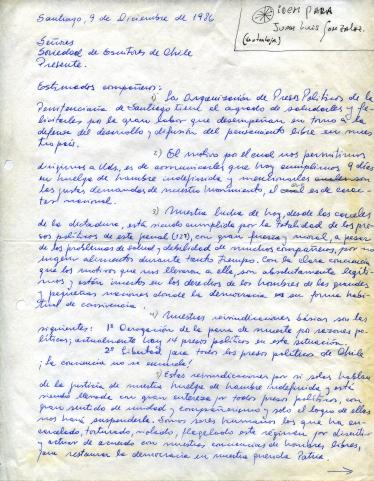 Santiago, 9 de Diciembre de 1986
IDEM PARA
JUAN LUIS GONZALEZ.
Señores
Sociedad de Escritores de Chile
Presente.
Estimados compañeros:
1) La Organización de Presos Políticos de la
Penitenciaría de Santiago tiene el agrado de saludarles y fe-
licitarles por la gran labor que desempeñan en torno a la
defensa del desarrollo y difusión del pensamiento libre en nues
tro país.
2) El motivo por el cual nos permitimos
dirigirnos a Uds, es de comunicarles que hoy cumplimos 9 días
en huelga de hambre indefinida y
las justas demandas de nuestro movimiento, el cual es de carac-
ter nacional.
3) Nuestra lucha de hoy, desde las carceles
de la dictadura, está siendo cumplida por la totalidad de los pre
sos políticos de este penal (127), con gran fuerza y moral, a pesar
de los problemas de salud y debilidad de muchos compañeros, por no
ingerir alimentos durante tanto tiempo. Con la clara conciencia
que los motivos que nos llevaron a ella, son absolutamente legíti-
mos y están insertos en los derechos de los hombres de las grandes
y pequeñas naciones donde la democracia es su forma ha-
bitual de convivencia.
4) Nuestras reivindicaciones básicas son las
siguientes: 1º Derogación de la pena de muerte por razones po
líticas; actualmente hay 14 presos políticos en esta situación.
2º Libertad para todos los presos políticos de Chile
¡La conciencia no se encarcela!
5) Estas reivindicaciones por si solas hablan
de la justicia de nuestra huelga de hambre indefinida y está
siendo llevada con gran entereza por todos presos políticos, con
gran sentido de unidad y compañerismo y solo el logro de ellas
nos hará suspenderla. Somos seres humanos los que ha en-
carcelado, torturado, violado, flagelado este régimen por discutir
y actuar de acuerdo con nuestras conciencias de hombres libres,
para restaurar la democracia en nuestra querida Patria.